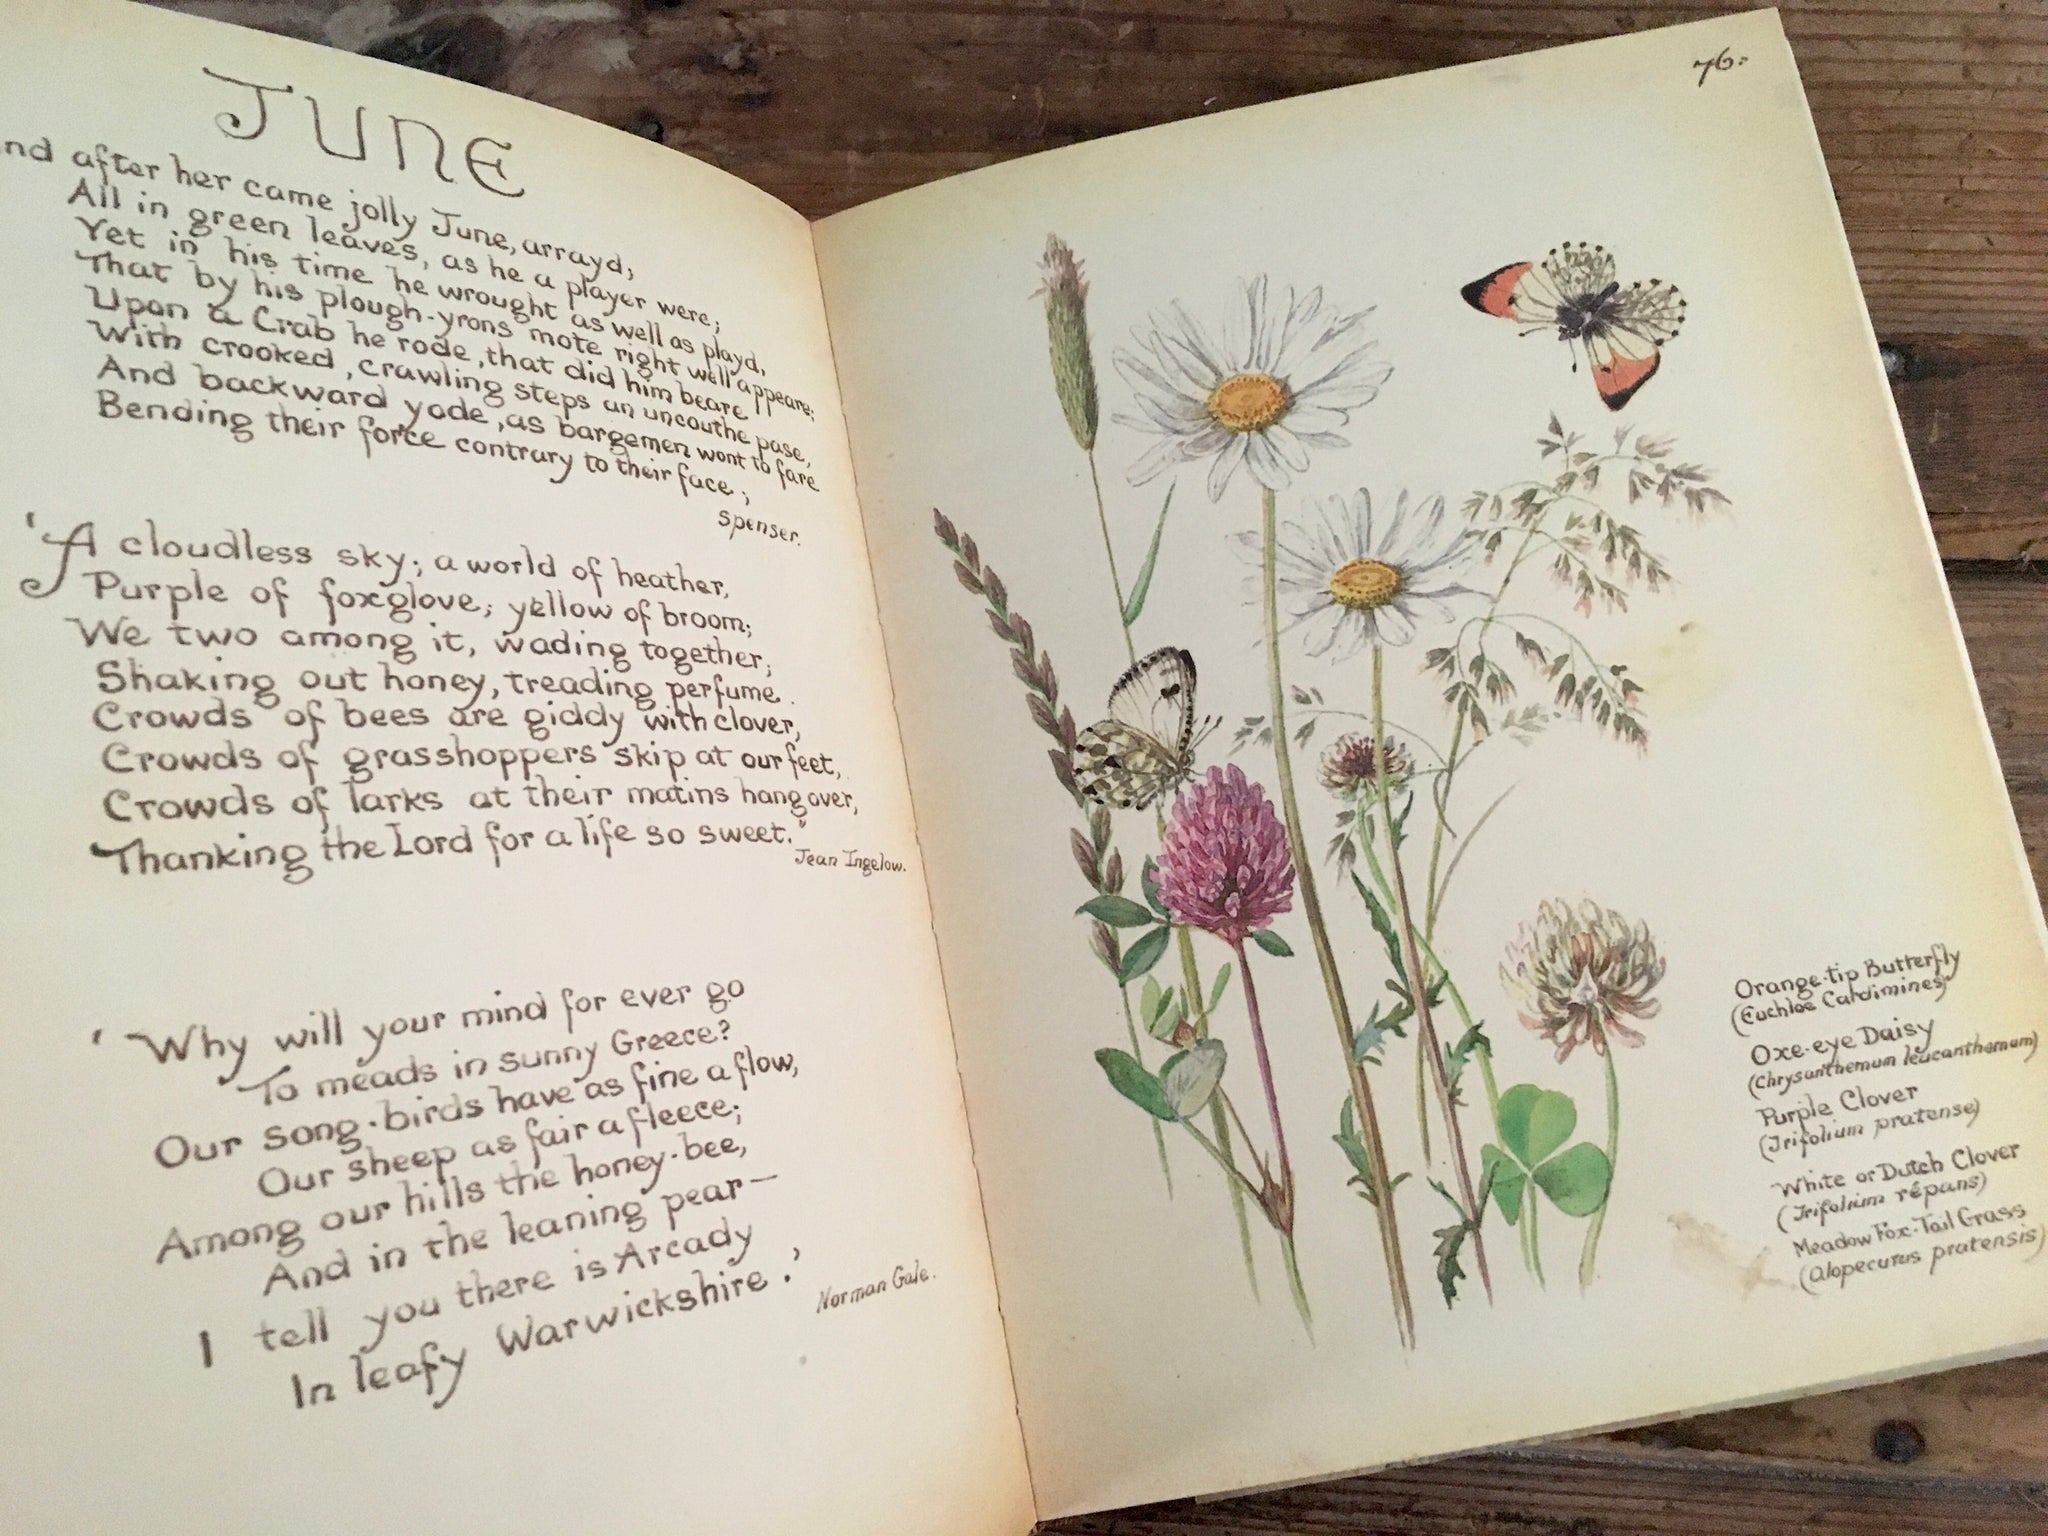 JUNE
nd after her came jolly June, arrayd;
All in green leaves, as he a player were;
Yet in his time he wrought as well as playd,
That by his plough-yrons mote right well appeare;
Upon a Crab he rode, that did him beare
With crooked, crawling steps an uncouthe pase,
And backward yode, as bargemen wont to fare
Bending their force contrary to their face;
Spenser.
'A cloudless sky; a world of heather,
Purple of foxglove; yellow of broom;
We two among it, wading together;
Shaking out honey, treading perfume.
Crowds of bees are giddy with clover,
Crowds of grasshoppers skip at our feet,
Crowds of larks at their matins hang over,
Thanking the Lord for a life so sweet.'
Jean Ingelow.
'Why will your mind for ever go
To meads in sunny Greece?
Our song-birds have as fine a flow,
Our sheep as fair a fleece;
Among our hills the honey-bee,
And in the leaning pear—
I tell you there is Arcady
In leafy Warwickshire.'
Norman Gale.
76.
Orange-tip Butterfly
(Euchloe Cardimines)
Oxe-eye Daisy
(Chrysanthemum leucanthemum)
Purple Clover
(Trifolium pratense)
White or Dutch Clover
(Trifolium répans)
Meadow Fox-Tail Grass
(Alopecurus pratensis)